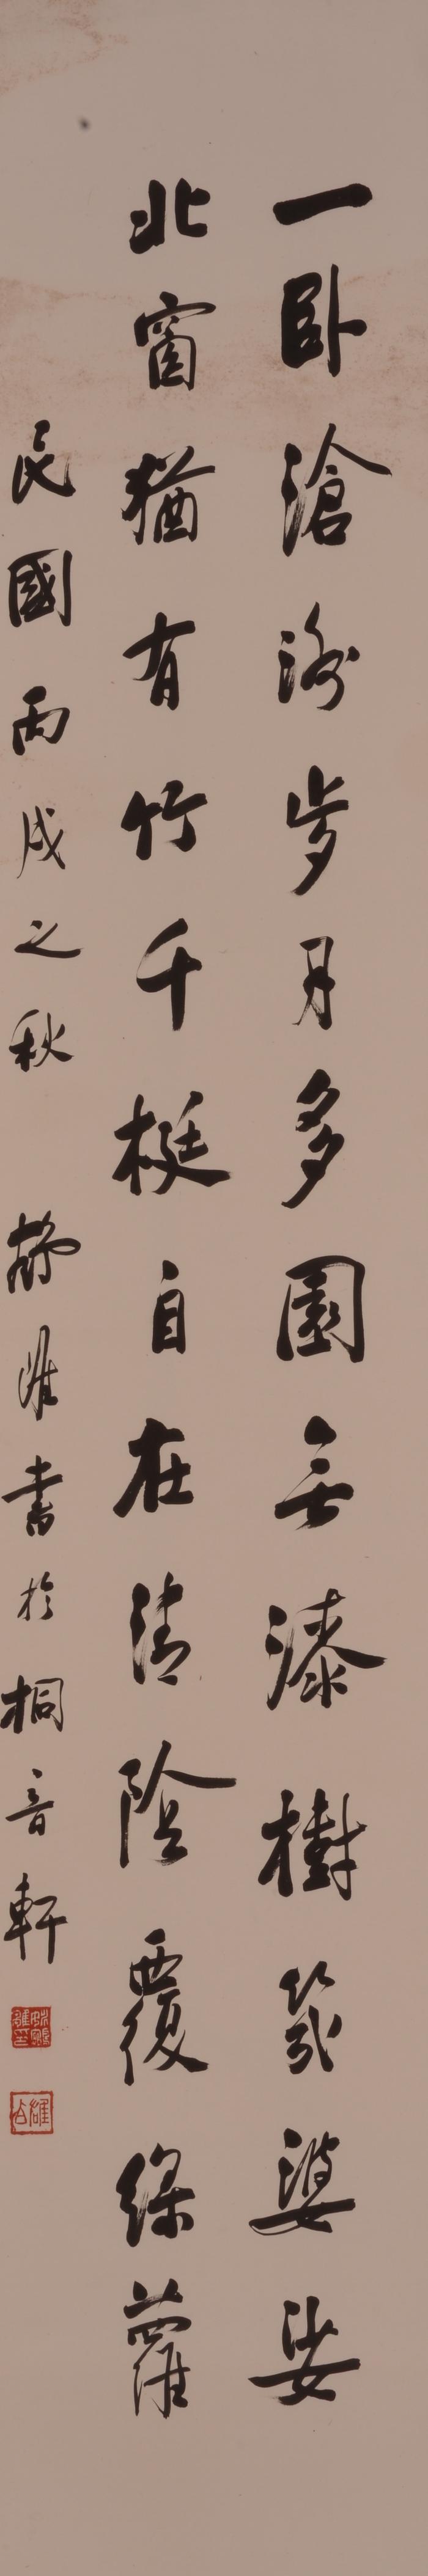 一卧滄洲歲月多園無漆樹幾婆娑
北窗猶有竹千梃自在清陰覆綠蘿
民國丙戌之秋 靜淮書於桐音軒